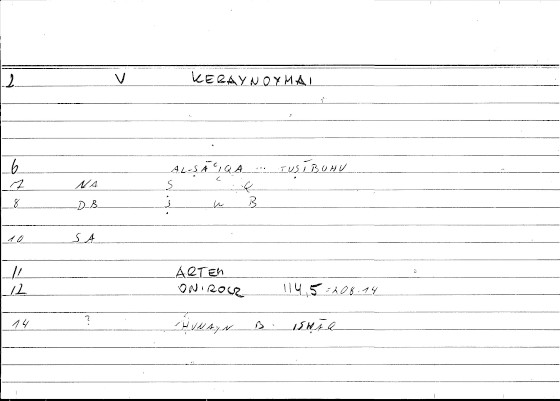 1 V KERAYNOYMAI
6 AL-ṢĀʿIQA ... TUṢĪBUHU
7 NA Ṣ ʿ Q
8 DB Ṣ W B
10 SA
11 ARTEM
12 ONIROCR 114,5 = 208.14
14 ? ḤUNAYN B. ISḤĀQ